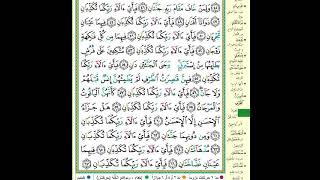 وَلِمَنْ خَافَ مَقَامَ رَبِّهِۦ جَنَّتَانِ ۝ فَبِأَىِّ ءَالَآءِ رَبِّكُمَا تُكَذِّبَانِ
۝ ذَوَاتَآ أَفْنَانٍ ۝ فَبِأَىِّ ءَالَآءِ رَبِّكُمَا تُكَذِّبَانِ ۝ فِيهِمَا عَيْنَانِ
تَجْرِيَانِ ۝ فَبِأَىِّ ءَالَآءِ رَبِّكُمَا تُكَذِّبَانِ ۝ فِيهِمَا مِن كُلِّ فَٰكِهَةٍ
زَوْجَانِ ۝ فَبِأَىِّ ءَالَآءِ رَبِّكُمَا تُكَذِّبَانِ ۝ مُتَّكِـِٔينَ عَلَىٰ فُرُشٍۭ
بَطَآئِنُهَا مِنْ إِسْتَبْرَقٍ وَجَنَى ٱلْجَنَّتَيْنِ دَانٍ ۝ فَبِأَىِّ ءَالَآءِ
رَبِّكُمَا تُكَذِّبَانِ ۝ فِيهِنَّ قَٰصِرَٰتُ ٱلطَّرْفِ لَمْ يَطْمِثْهُنَّ إِنسٌ قَبْلَهُمْ
وَلَا جَآنٌّ ۝ فَبِأَىِّ ءَالَآءِ رَبِّكُمَا تُكَذِّبَانِ ۝ كَأَنَّهُنَّ ٱلْيَاقُوتُ
وَٱلْمَرْجَانُ ۝ فَبِأَىِّ ءَالَآءِ رَبِّكُمَا تُكَذِّبَانِ ۝ هَلْ جَزَآءُ
ٱلْإِحْسَٰنِ إِلَّا ٱلْإِحْسَٰنُ ۝ فَبِأَىِّ ءَالَآءِ رَبِّكُمَا تُكَذِّبَانِ
۝ وَمِن دُونِهِمَا جَنَّتَانِ ۝ فَبِأَىِّ ءَالَآءِ رَبِّكُمَا تُكَذِّبَانِ
۝ مُدْهَآمَّتَانِ ۝ فَبِأَىِّ ءَالَآءِ رَبِّكُمَا تُكَذِّبَانِ ۝ فِيهِمَا
عَيْنَانِ نَضَّاخَتَانِ ۝ فَبِأَىِّ ءَالَآءِ رَبِّكُمَا تُكَذِّبَانِ ۝